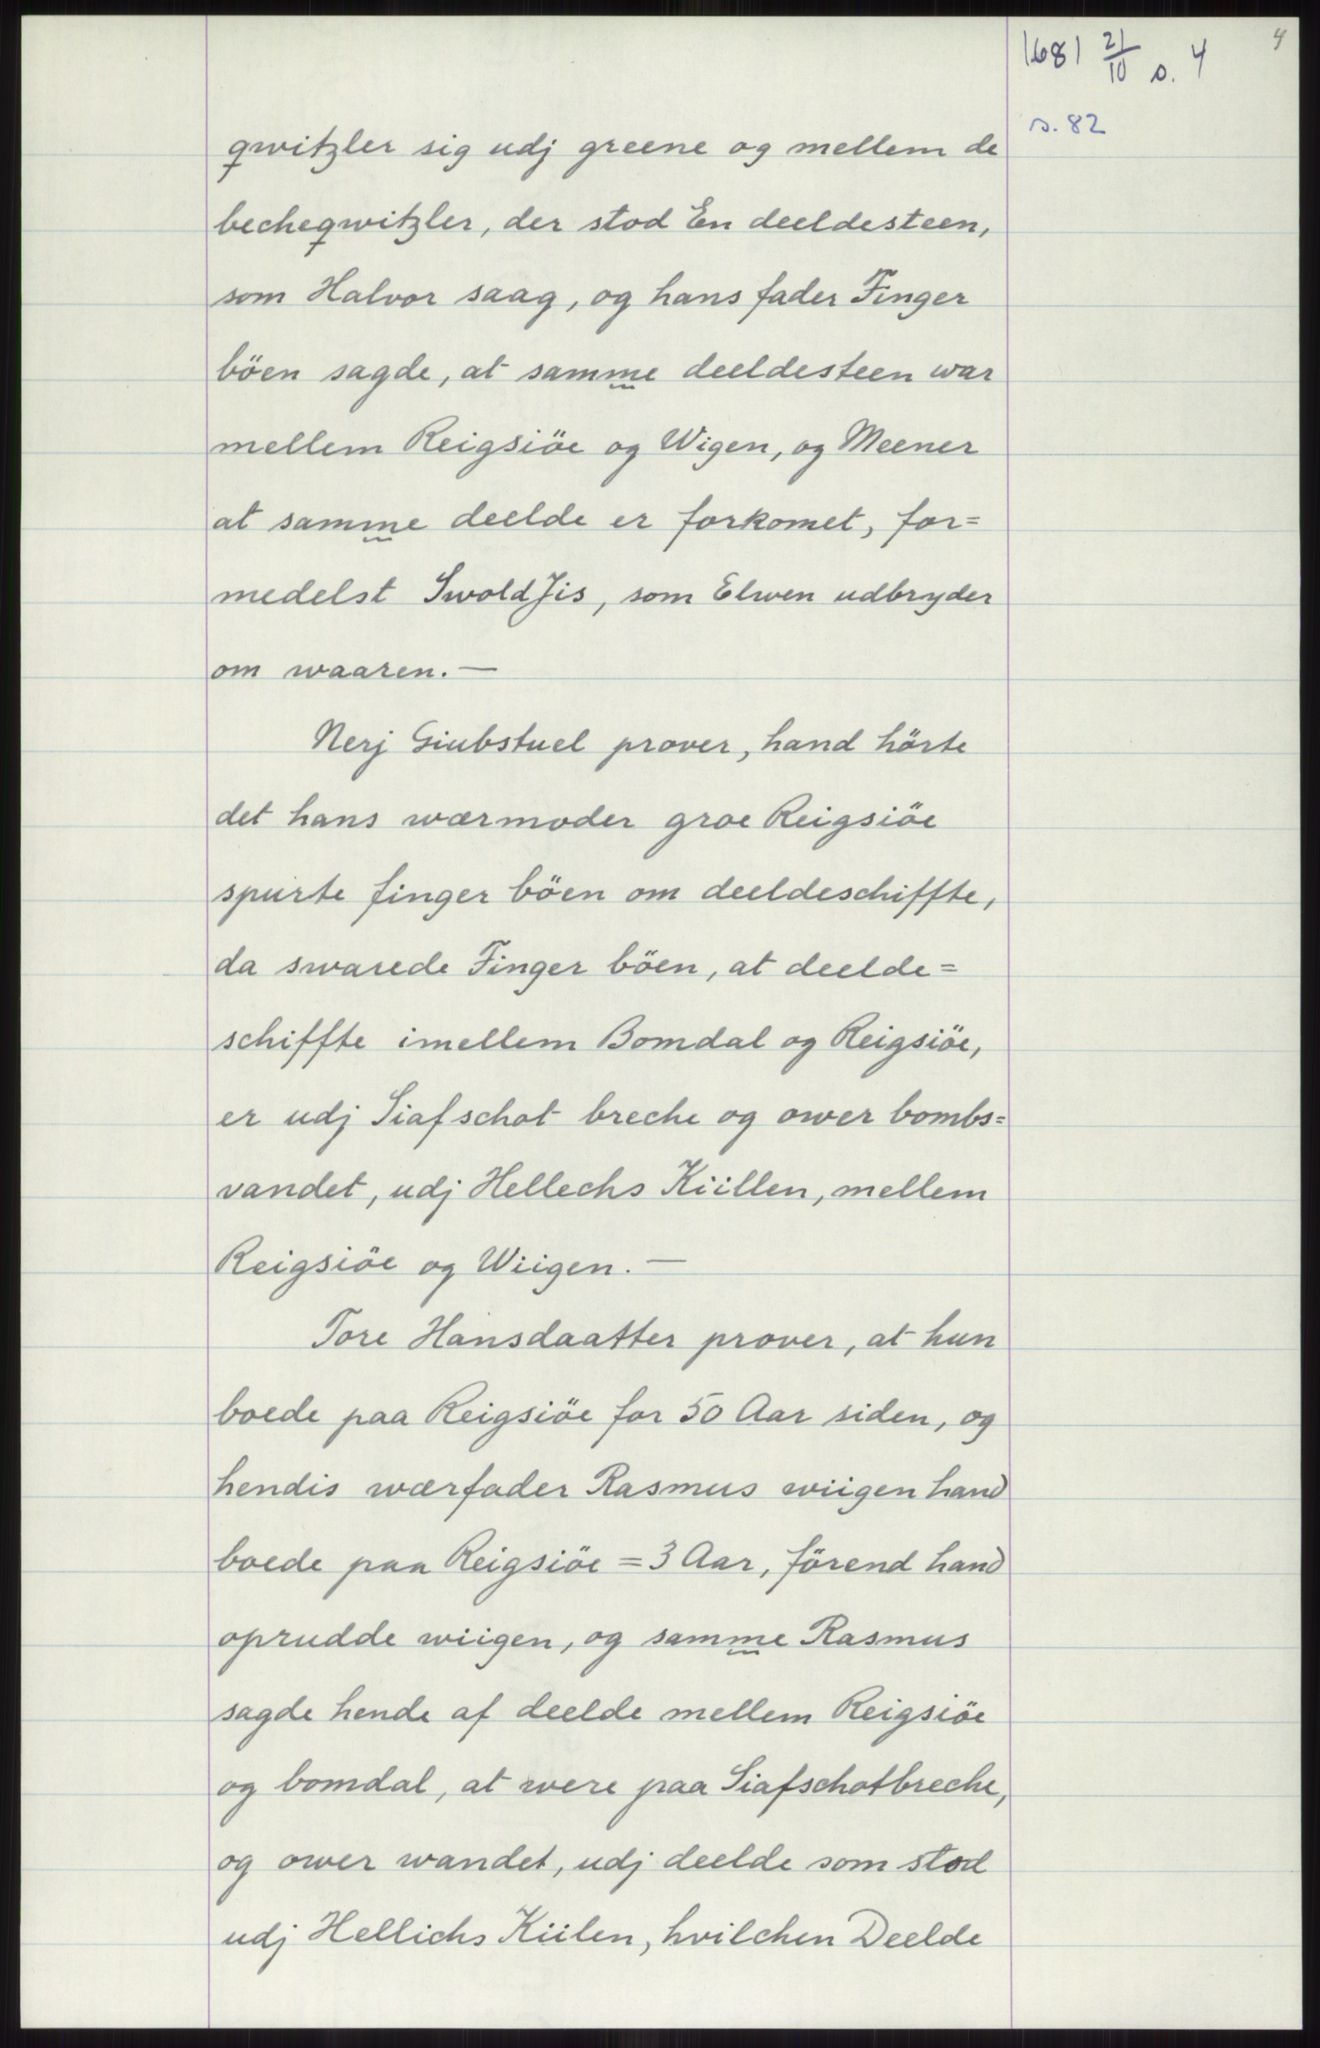 4
1681 21/10 s. 4
s. 82
qwitzler sig udj greene og mellem de
becheqwitzler, der stod En deeldesteen,
som Halvor saag, og hans fader Finger
böen sagde, at samme deeldesteen war
mellem Reigsiöe og Wigen, og Meener
at samme deelde er forkomet, for=
medelst SwoldJis, som Elwen udbryder
om waaren.—
Nerj Giubstuel prover, hand hörte
det hans wærmoder groe Reigsiöe
spurte finger böen om deeldeschiffte,
da swarede Finger böen, at deelde=
schiffte imellem Bomdal og Reigsiöe,
er udj Siafschot breche og ower bombs=
vandet, udj Hellechs Kiillen, mellem
Reigsiöe og Wiigen.—
Tore Hansdaatter prover, at hun
boede paa Reigsiöe for 50 Aar siden, og
hendis wærfader Rasmus wiigen hand
boede paa Reigsiöe = 3 Aar, förend hand
oprudde wiigen, og samme Rasmus
sagde hende af deelde mellem Reigsiöe
og bomdal, at were paa Siafschotbreche,
og ower wandet, udj deelde som stod
udj Hellichs Kiilen, hvilchen Deelde